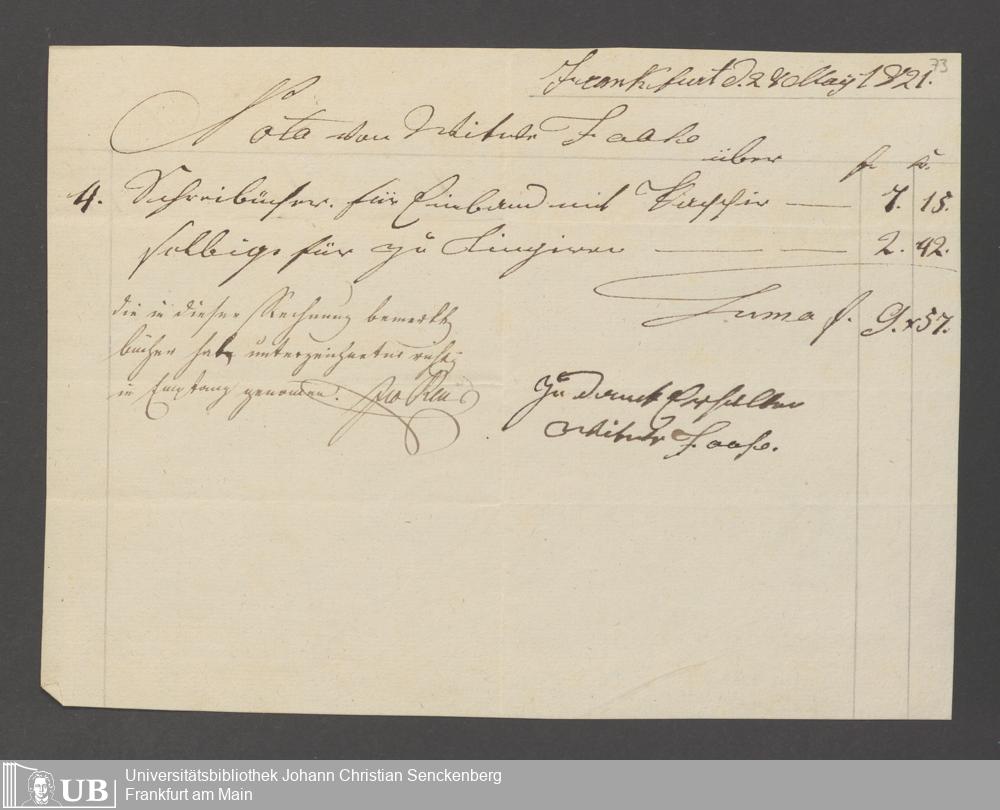 73
Franckfurt d. 28 May 1821.
Nota von Witwe Haase
über f. x.
4. Schreibücher. für Einband mit Pappir — 7. 15.
selbige für zu Lingiren — — — 2. 42.
Suma f. 9. x 57.
die in dieser Rechnung bemerkte
bücher hat unterzeichneter
in Empfang genomen.
Zu danck Erhalten
Witwe Haase.
UB
Universitätsbibliothek Johann Christian Senckenberg
Frankfurt am Main